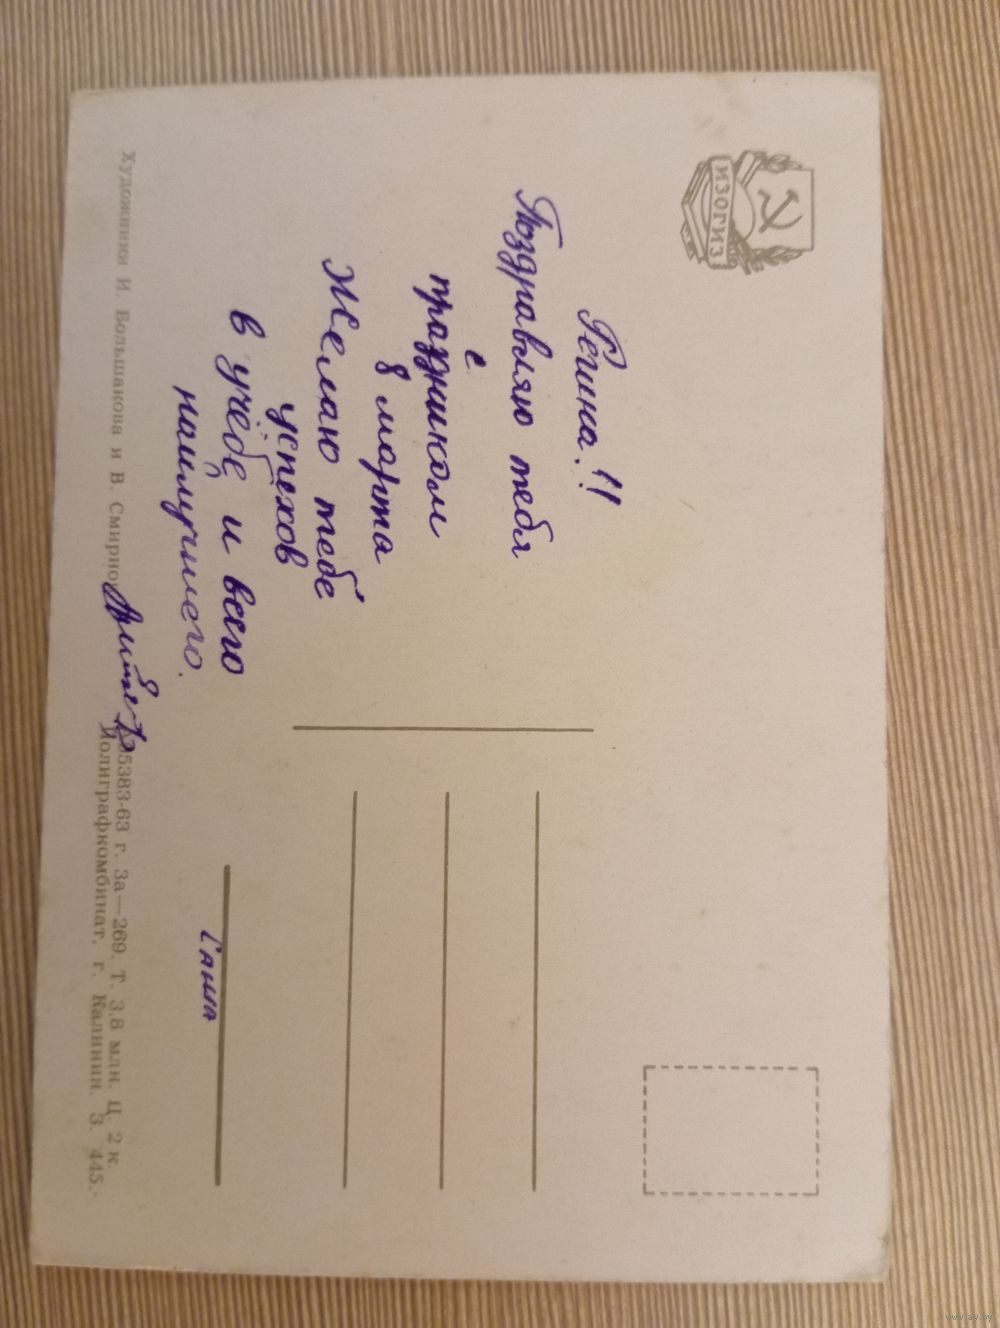 ИЗОГИЗ
Регина!!
Поздравляю тебя
с
праздником
8 марта
Желаю тебе
успехов
в учёбе и всего
наилучшего.
Саша
Художники И. Большакова и В. Смирнов
5383-63 г. За—269. Т. 3,8 млн. Ц. 2 к.
Полиграфкомбинат, г. Калинин. З. 445.
www.ay.by